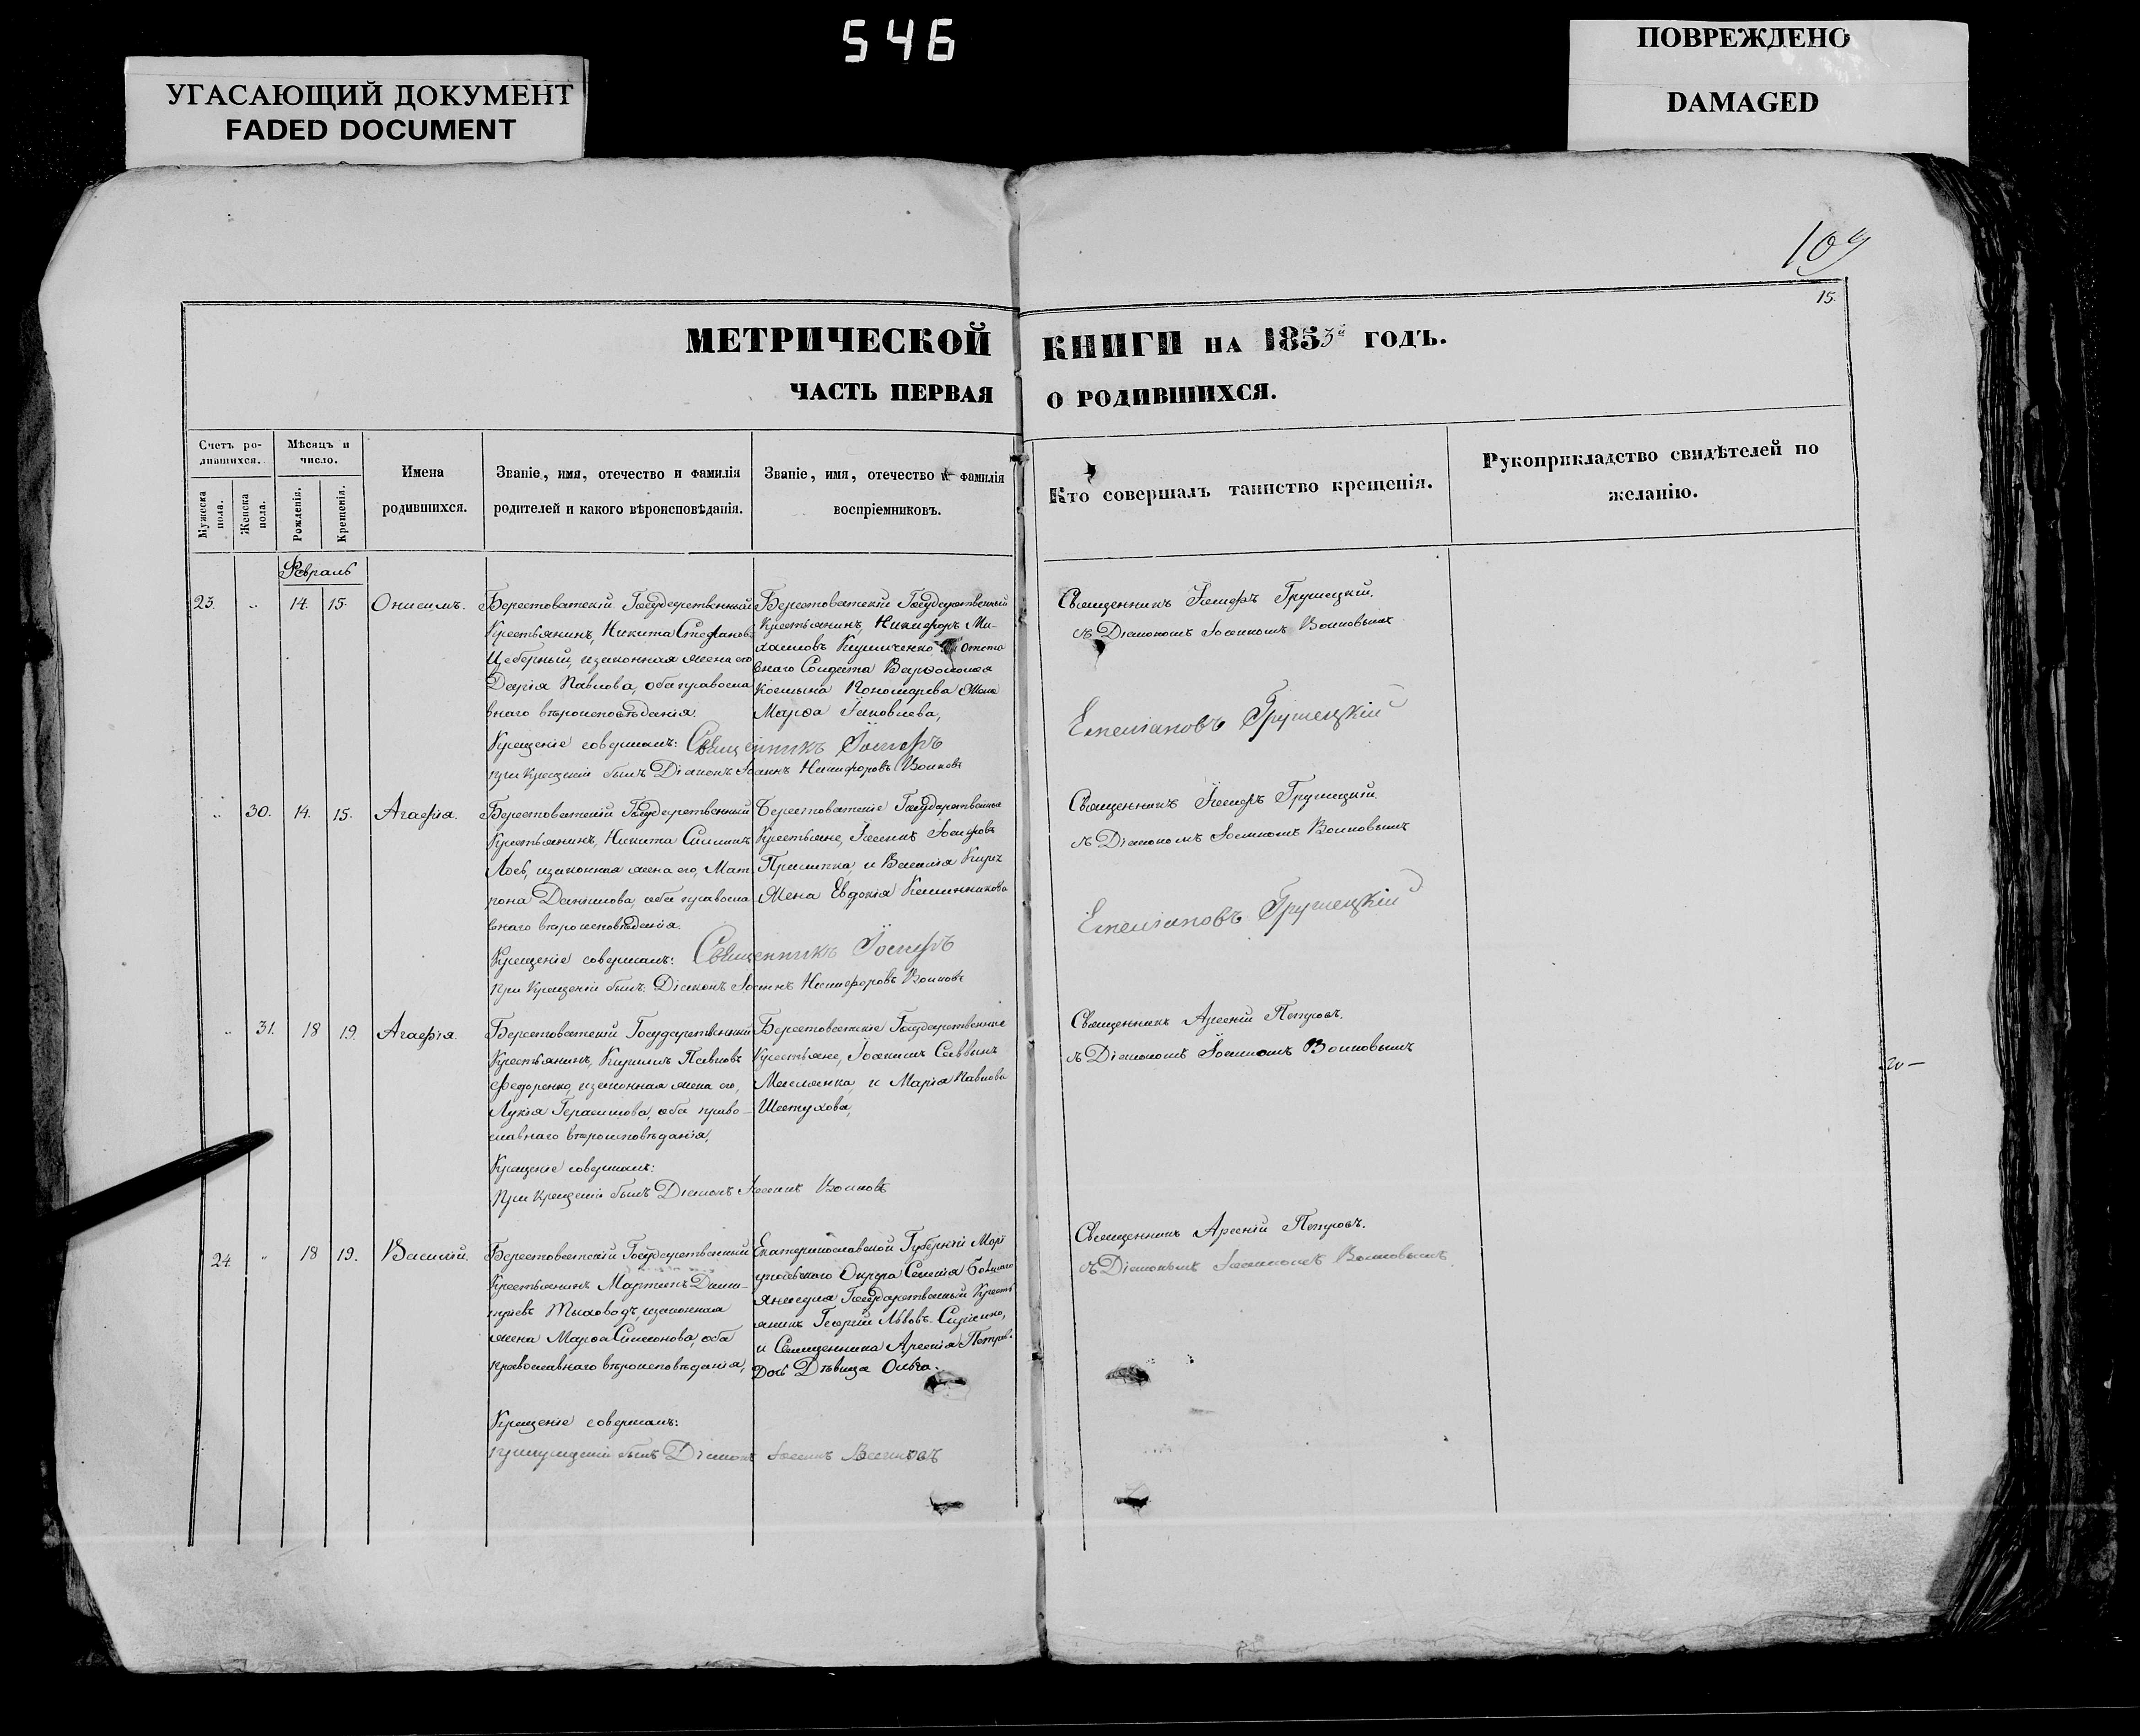 546
УГАСАЮЩИЙ ДОКУМЕНТ
FADED DOCUMENT
ПОВРЕЖДЕНО
DAMAGED
109
15.
МЕТРИЧЕСКОЙ КНИГИ НА 1853й ГОДЪ.
ЧАСТЬ ПЕРВАЯ О РОДИВШИХСЯ.
Счетъ ро-
дившихся.
Мужеска пола.
Женска пола.
Мѣсяцъ и
число.
Рожденія.
Крещенія.
Имена
родившихся.
Званіе, имя, отечество и фамилія
родителей и какого вѣроисповѣданія.
Званіе, имя, отечество и фамилія
воспріемниковъ.
Кто совершалъ таинство крещенія.
Рукоприкладство свидѣтелей по
желанію.
Февраль
23. " 14. 15. Онисимъ.
Берестоватскій Государственный
Крестьянинъ, Никита Стефановъ
Цеберный, изаконная жена его
Дарія Павлова, оба правосла
внаго вѣроисповѣданія.
Берестоватскій Государственный
Крестьянинъ, Никифоръ Ми-
хаиловъ Кириченко и Отста
внаго Солдата Варѳоломея
Пономарева Жена
Марѳа Іаковлева,
Священникъ Іосифъ Грушецкій.
съ Діакономъ Іоанномъ Волковымъ
Крещеніе совершалъ: Священникъ Іосифъ
Емеліановъ Грушецкій
при Крещеніи былъ Діаконъ Іоаннъ Никифоровъ Волковъ
" 30. 14. 15. Агафія.
Берестоватскій Государственный
Крестьянинъ, Никита
Лось, изаконная жена его, Мат
рона Даниилова, оба правосла
внаго вѣроисповѣданія.
Берестоватскіе Государственные
Крестьяне, Іосифовъ
Прилипка, и Василія
Жена Евдокія
Священникъ Іосифъ Грушецкій.
съ Діакономъ Іоанномъ Волковымъ
Крещеніе совершалъ: Священникъ Іосифъ
Емеліановъ Грушецкій
При Крещеніи былъ: Діаконъ Іоаннъ Никифоровъ Волковъ
" 31. 18 19. Агафія.
Берестоватскій Государственный
Крестьянинъ, Кириллъ Павловъ
Федоренко, изаконная жена его,
Лукія Герасимова, оба право-
славнаго вѣроисповѣданія,
Берестоватскіе Государственные
Крестьяне, Іоакимъ Саввинъ
Маслянка и Марія Павлова
Шестухова,
Священникъ Арсеній Петровъ.
съ Діакономъ Іоанномъ Волковымъ
Крещеніе совершалъ:
При Крещеніи былъ Діаконъ Іоаннъ Волковъ
24. " 18 19. Василій.
Берестоватскій Государственный
Крестьянинъ Мартинъ Дими-
тріевъ изаконная
жена Марѳа Симеонова, оба
православнаго вѣроисповѣданія,
Екатеринославской Губерніи Марі
упольскаго Округа Селенія Большаго
Янисуля Государственный Кресть
янинъ Георгій Львовъ
и Священника Арсенія Петрова
Дочь Дѣвица Ольга.
Священникъ Арсеній Петровъ.
съ Діакономъ Іоанномъ Волковымъ
Крещеніе совершалъ:
при крещеніи былъ Діаконъ Іоаннъ Волковъ